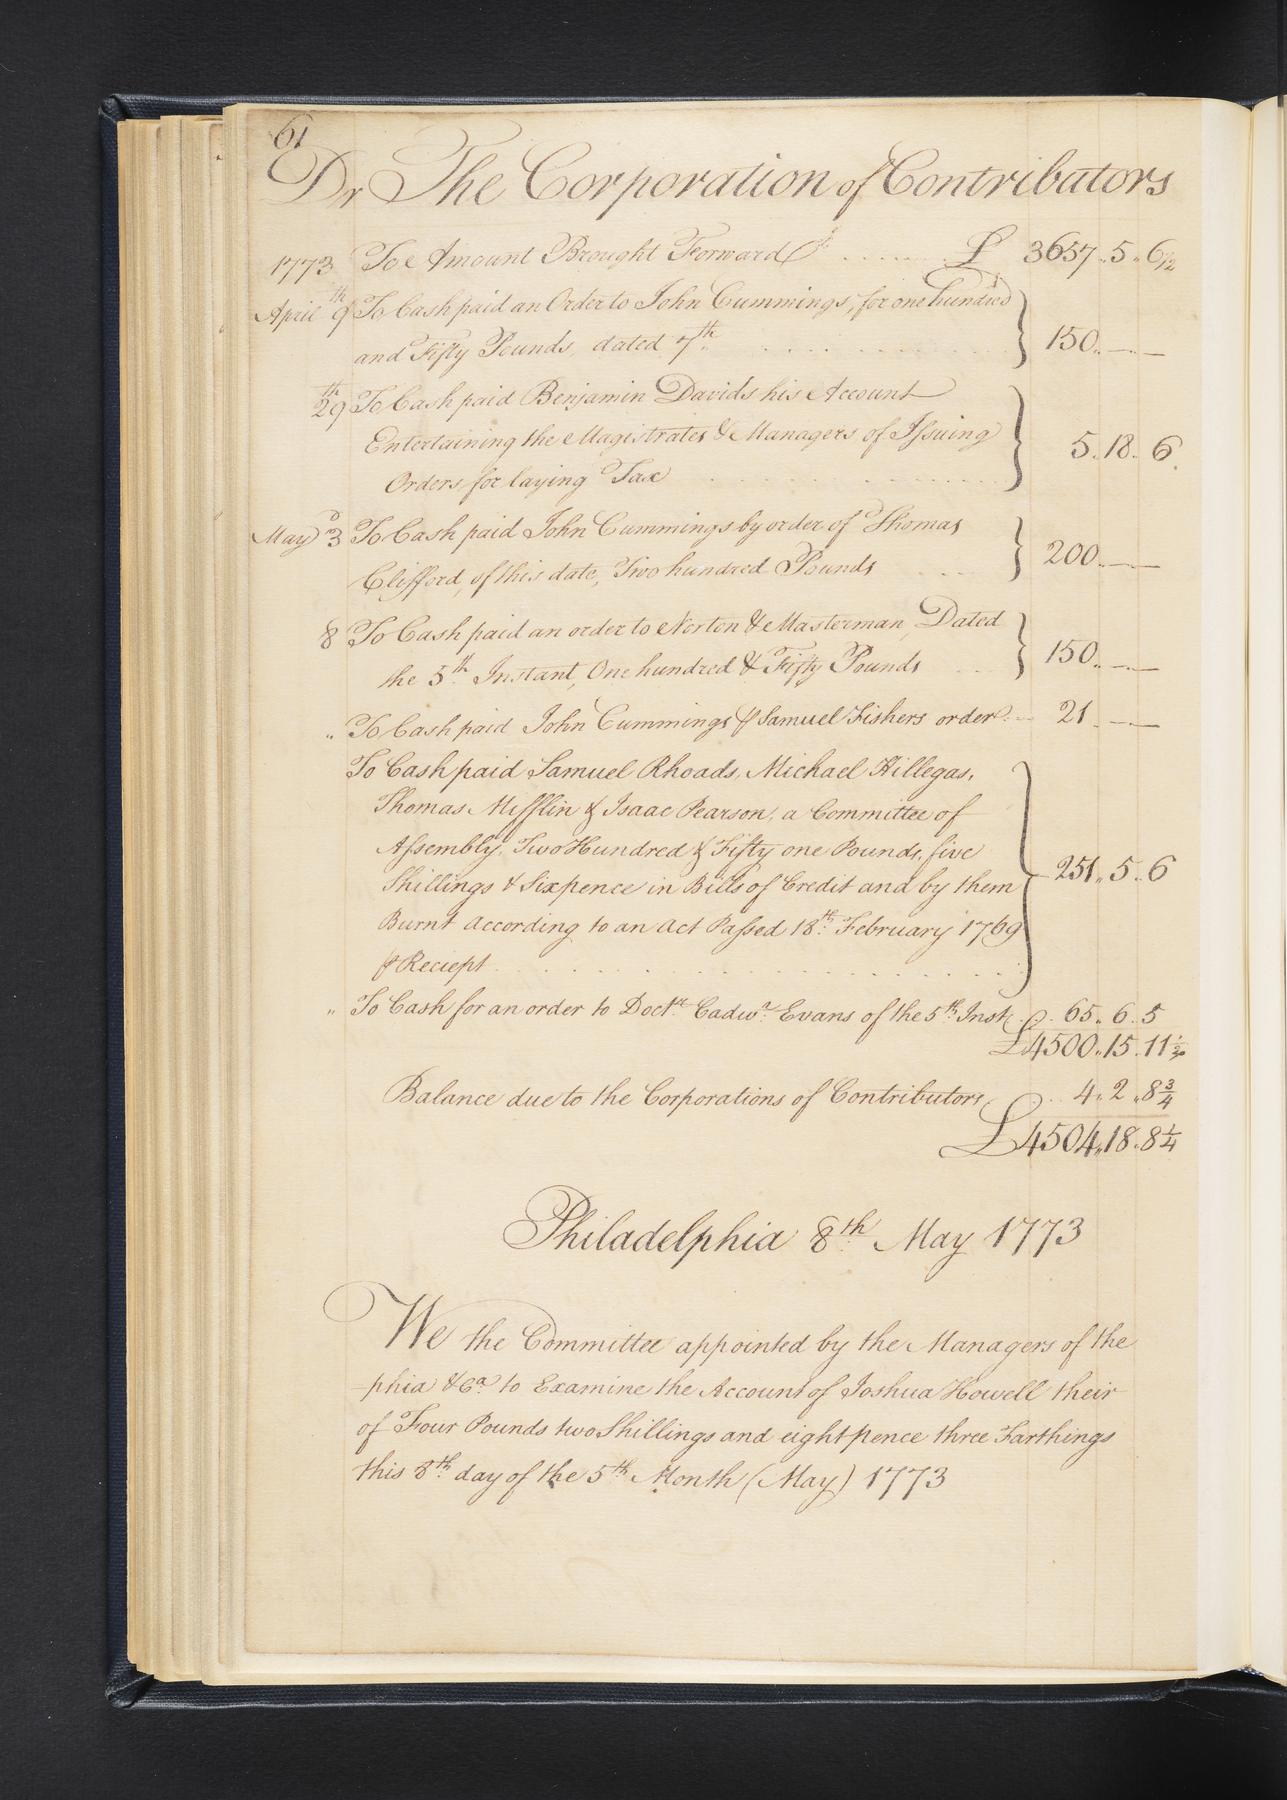 61
Dr The Corporation of Contributors
1773 To Amount Brought Forward £ 3657..5..6 1/2
April 9th To Cash paid an Order to John Cummings, for one hundred
and Fifty Pounds, dated 7th 150..—..—
29th To Cash paid Benjamin Davids his Account
Entertaining the Magistrates & Managers of Issuing
Orders for laying Tax 5..18..6
May 3d To Cash paid John Cummings by order of Thomas
Clifford, of this date, Two hundred Pounds 200..—..—
8 To Cash paid an order to Norton & Masterman, Dated
the 5th Instant, One hundred & Fifty Pounds 150..—..—
" To Cash paid John Cummings ⅌ Samuel Fishers order 21..—..—
To Cash paid Samuel Rhoads, Michael Hillegas,
Thomas Mifflin & Isaac Pearson, a Committee of
Assembly, Two Hundred & Fifty one Pounds, five
Shillings & Sixpence in Bills of Credit and by them 251..5..6
Burnt According to an Act Passed 18th February 1769
⅌ Reciept
" To Cash for an order to Doctr Cadwr Evans of the 5th Inst 65..6..5
£4500..15..11 1/2
Balance due to the Corporations of Contributors 4..2..8 3/4
£4504..18..8 1/4
Philadelphia 8th May 1773
We the Committee appointed by the Managers of the
phia &Ca to Examine the Account of Joshua Howell their
of Four Pounds two Shillings and eight pence three Farthings
this 8th day of the 5th Month (May) 1773